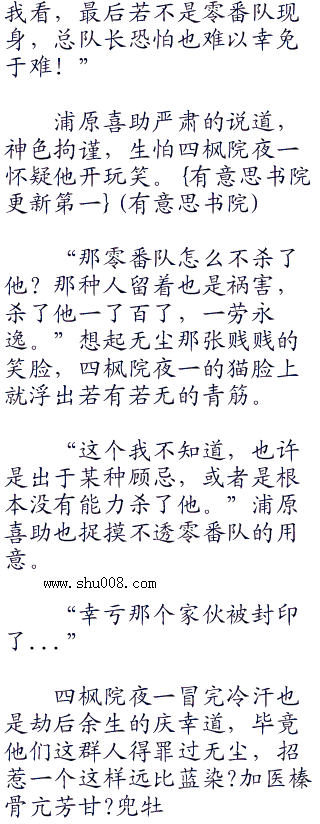 我看，最后若不是零番队现
身，总队长恐怕也难以幸免
于难！”
浦原喜助严肃的说道，
神色拘谨，生怕四枫院夜一
怀疑他开玩笑。{有意思书院
更新第一}(有意思书院)
“那零番队怎么不杀了
他？那种人留着也是祸害，
杀了他一了百了，一劳永
逸。”想起无尘那张贱贱的
笑脸，四枫院夜一的猫脸上
就浮出若有若无的青筋。
“这个我不知道，也许
是出于某种顾忌，或者是根
本没有能力杀了他。”浦原
喜助也捉摸不透零番队的用
意。
www.shu008.com
“幸亏那个家伙被封印
了...”
四枫院夜一冒完冷汗也
是劫后余生的庆幸道，毕竟
他们这群人得罪过无尘，招
惹一个这样远比蓝染?加医榛
骨亢芳甘?兜牡